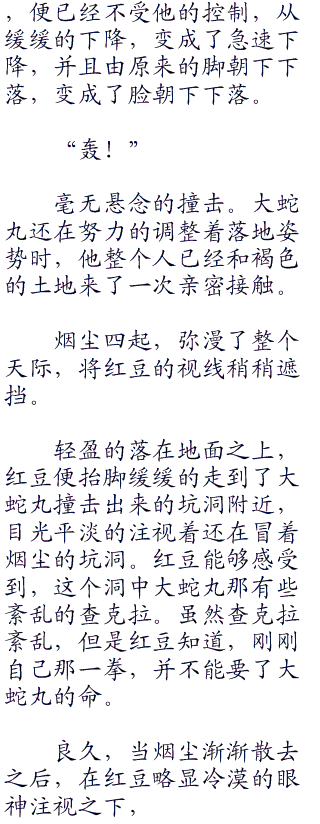 ，便已经不受他的控制，从
缓缓的下降，变成了急速下
降，并且由原来的脚朝下下
落，变成了脸朝下下落。
“轰！”
毫无悬念的撞击。大蛇
丸还在努力的调整着落地姿
势时，他整个人已经和褐色
的土地来了一次亲密接触。
烟尘四起，弥漫了整个
天际，将红豆的视线稍稍遮
挡。
轻盈的落在地面之上，
红豆便抬脚缓缓的走到了大
蛇丸撞击出来的坑洞附近，
目光平淡的注视着还在冒着
烟尘的坑洞。红豆能够感受
到，这个洞中大蛇丸那有些
紊乱的查克拉。虽然查克拉
紊乱，但是红豆知道，刚刚
自己那一拳，并不能要了大
蛇丸的命。
良久，当烟尘渐渐散去
之后，在红豆略显冷漠的眼
神注视之下，